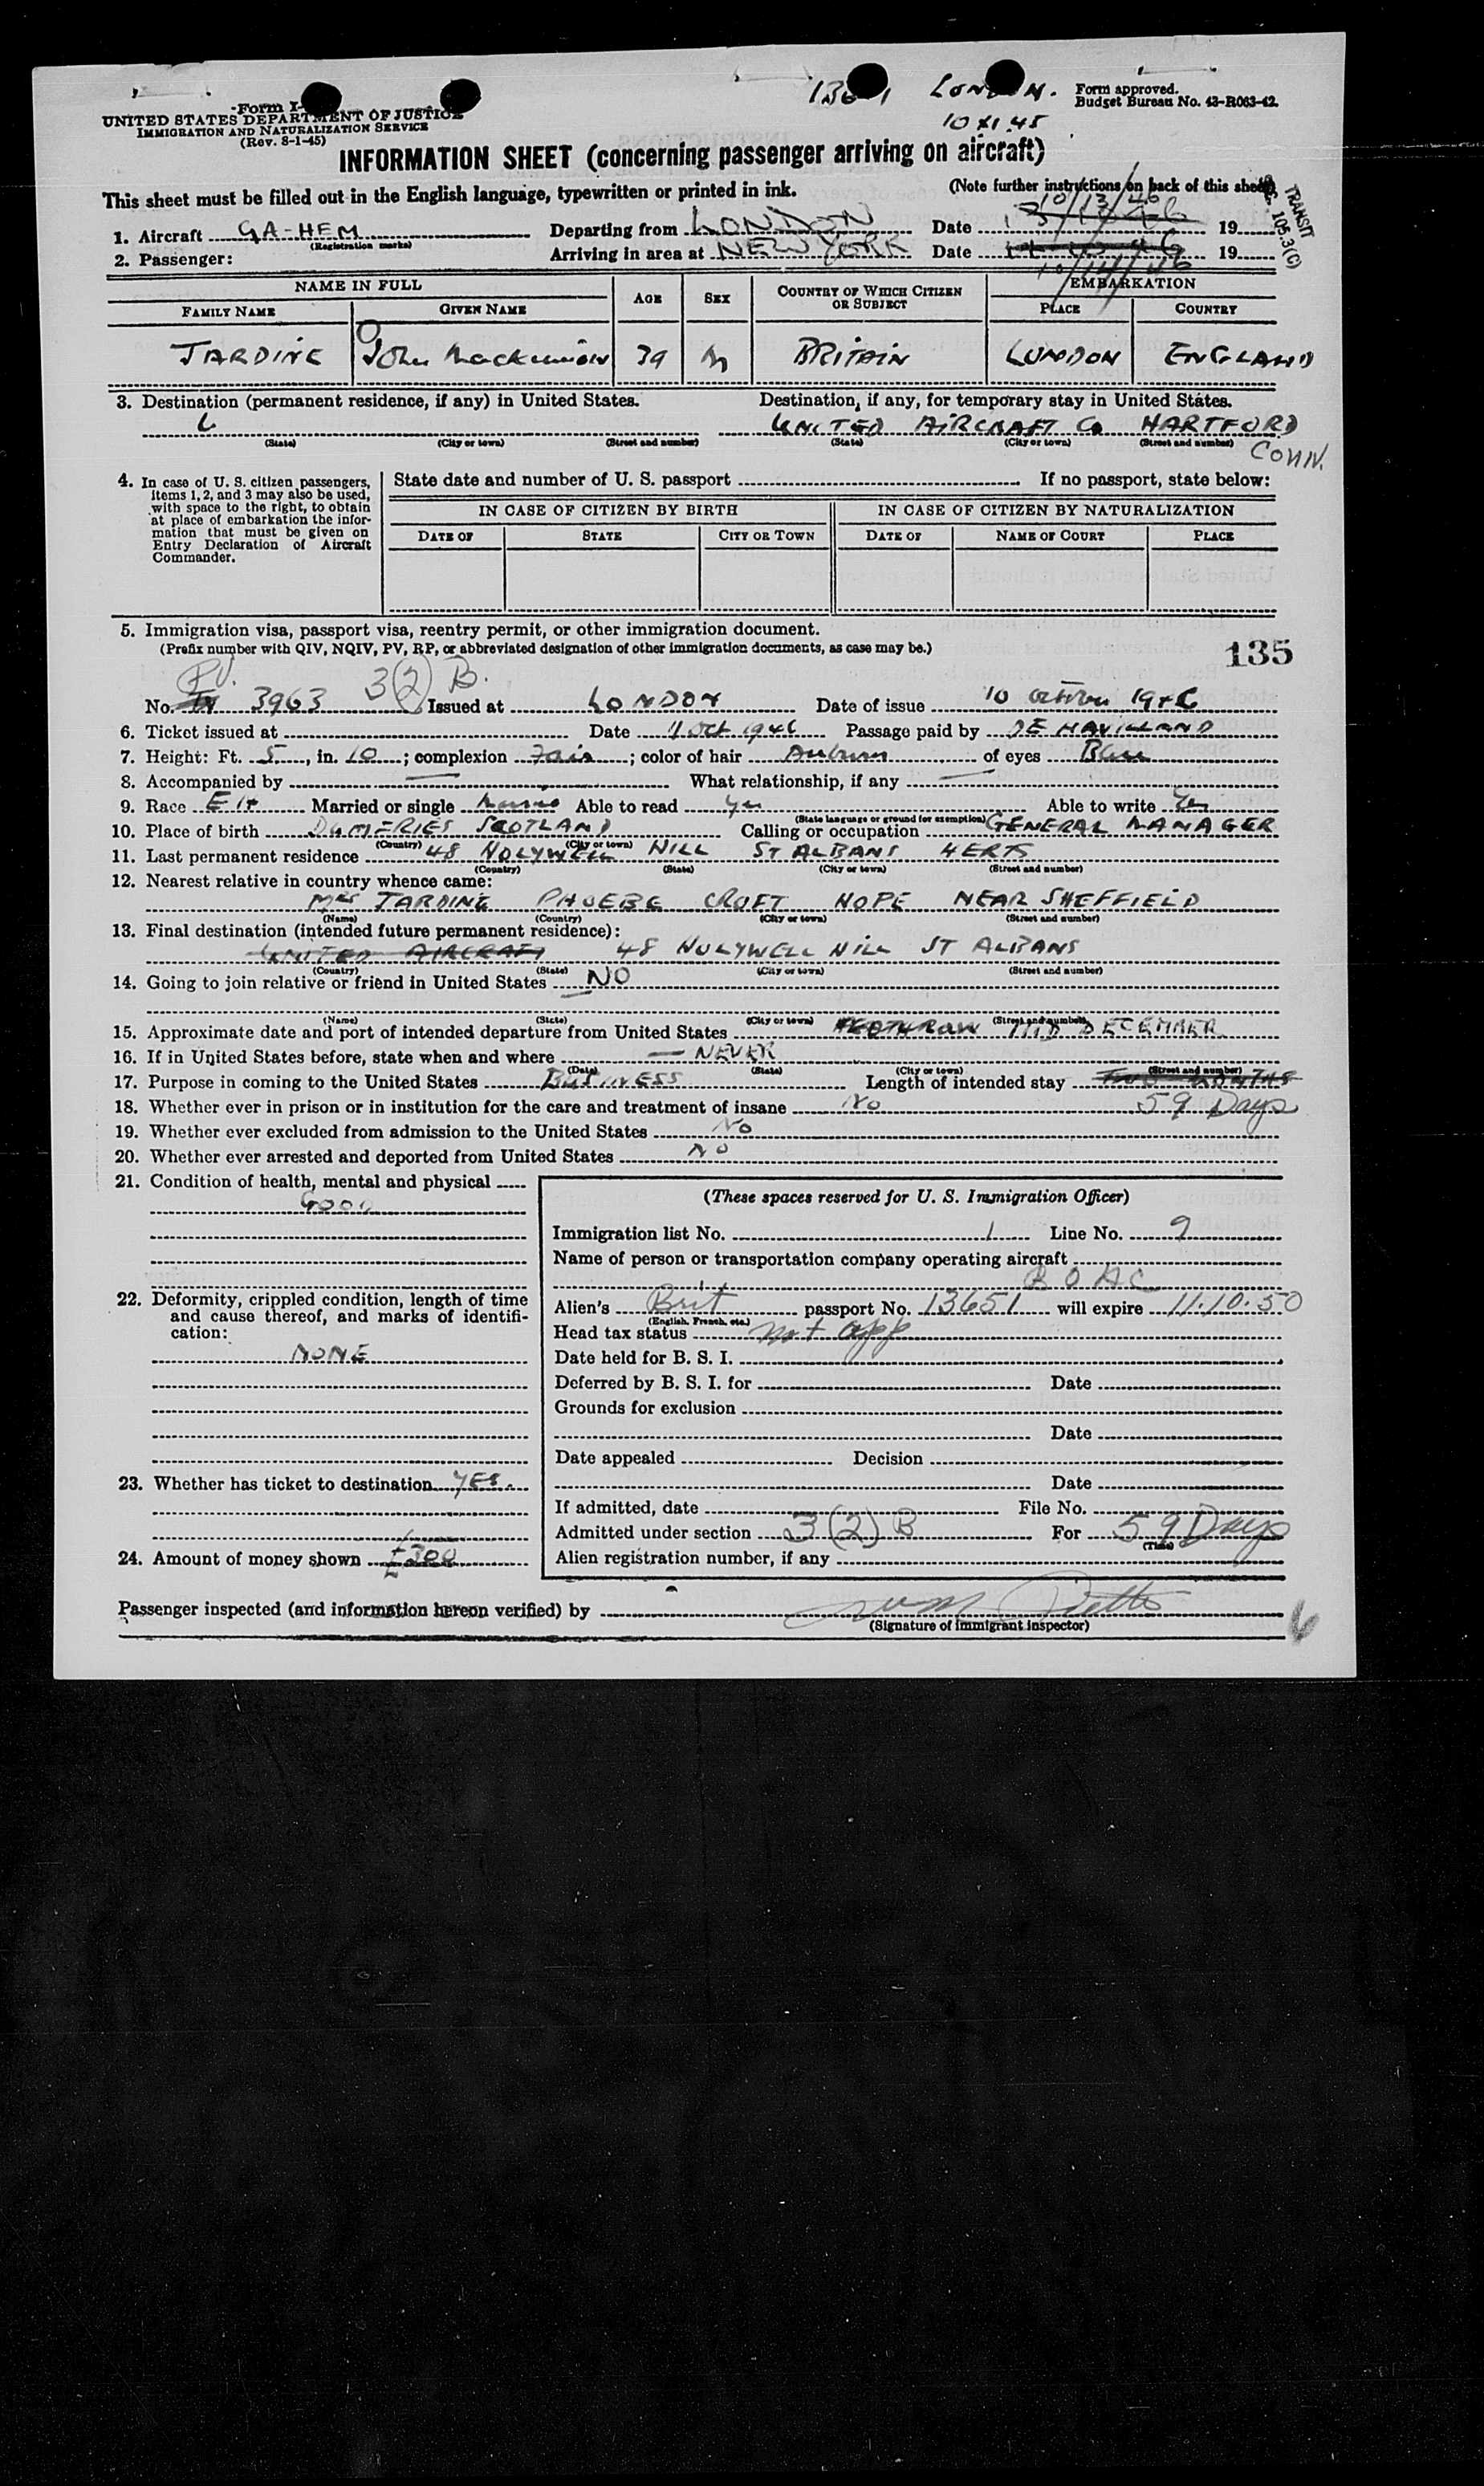 Form I-
UNITED STATES DEPARTMENT OF JUSTICE
IMMIGRATION AND NATURALIZATION SERVICE
(Rev. 8-1-45)
LONDON.
10 XI 45
Form approved.
Budget Bureau No. 43-R063-42.
INFORMATION SHEET (concerning passenger arriving on aircraft)
This sheet must be filled out in the English language, typewritten or printed in ink.
(Note further instructions on back of this sheet)
TRANSIT
SEC. 105.3(C)
10/13/46
1. Aircraft GA-HEM Departing from LONDON Date 19
(Registration marks)
2. Passenger: Arriving in area at NEW YORK Date 19
10/14/46
NAME IN FULL AGE SEX COUNTRY OF WHICH CITIZEN OR SUBJECT EMBARKATION
FAMILY NAME GIVEN NAME PLACE COUNTRY
JARDINE John 39 M BRITAIN LONDON ENGLAND
3. Destination (permanent residence, if any) in United States. Destination, if any, for temporary stay in United States.
UNITED AIRCRAFT Co HARTFORD
(State) (City or town) (Street and number) (State) (City or town) (Street and number)
CONN.
4. In case of U. S. citizen passengers, items 1, 2, and 3 may also be used, with space to the right, to obtain at place of embarkation the information that must be given on Entry Declaration of Aircraft Commander.
State date and number of U. S. passport If no passport, state below:
IN CASE OF CITIZEN BY BIRTH IN CASE OF CITIZEN BY NATURALIZATION
DATE OF STATE CITY OR TOWN DATE OF NAME OF COURT PLACE
5. Immigration visa, passport visa, reentry permit, or other immigration document.
(Prefix number with QIV, NQIV, PV, RP, or abbreviated designation of other immigration documents, as case may be.)
135
PV. 3(2) B.
No. 3963 Issued at LONDON Date of issue 10 October 1946
6. Ticket issued at Date 11 Oct 1946 Passage paid by DE HAVILLAND
7. Height: Ft. 5, in. 10; complexion Fair; color of hair Auburn of eyes Blue
8. Accompanied by What relationship, if any
9. Race Married or single Able to read Yes Able to write Yes
(State language or ground for exemption)
10. Place of birth DUMFRIES SCOTLAND Calling or occupation GENERAL MANAGER
(Country) (City or town)
11. Last permanent residence 48 HOLYWELL HILL ST ALBANS HERTS
(Country) (State) (City or town) (Street and number)
12. Nearest relative in country whence came:
MRS JARDINE PHOEBE CROFT HOPE NEAR SHEFFIELD
(Name) (Country) (City or town) (Street and number)
13. Final destination (intended future permanent residence):
UNITED AIRCRAFT 48 HOLYWELL HILL ST ALBANS
(Country) (State) (City or town) (Street and number)
14. Going to join relative or friend in United States NO
(Name) (State) (City or town) (Street and number)
15. Approximate date and port of intended departure from United States HEATHROW MID DECEMBER
16. If in United States before, state when and where — NEVER
(Date) (State) (City or town) (Street and number)
17. Purpose in coming to the United States BUSINESS Length of intended stay TWO MONTHS
18. Whether ever in prison or in institution for the care and treatment of insane No 59 Days
19. Whether ever excluded from admission to the United States No
20. Whether ever arrested and deported from United States NO
21. Condition of health, mental and physical
GOOD
(These spaces reserved for U. S. Immigration Officer)
Immigration list No. 1 Line No. 9
Name of person or transportation company operating aircraft
B O A C
22. Deformity, crippled condition, length of time and cause thereof, and marks of identification:
NONE
Alien's Brit passport No. 13651 will expire 11.10.50
(English, French, etc.)
Head tax status not app
Date held for B. S. I.
Deferred by B. S. I. for Date
Grounds for exclusion
Date
Date appealed Decision
23. Whether has ticket to destination YES.
Date
If admitted, date File No.
Admitted under section 3(2) B For 59 Days
(Time)
24. Amount of money shown £300
Alien registration number, if any
Passenger inspected (and information hereon verified) by
(Signature of immigrant inspector)
6